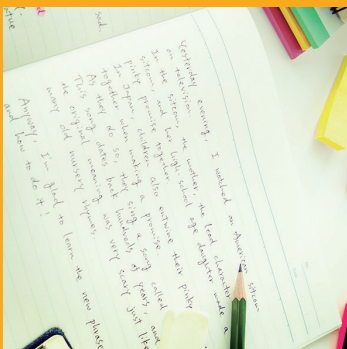 sad.
Yesterday evening, I watched an American sitcom
on television.
In the sitcom, the mother, the lead character
sitcom, and her high-school age daughter made a
pinky promise together.
In Japan, children also entwine their pinky
together when making a promise
As they do so, they sing a song called
This song dates back hundreds of years, and
the original meaning was very scary just like
many old nursery rhymes.
Anyway, I'm glad to learn the new phrase
and how to do it!